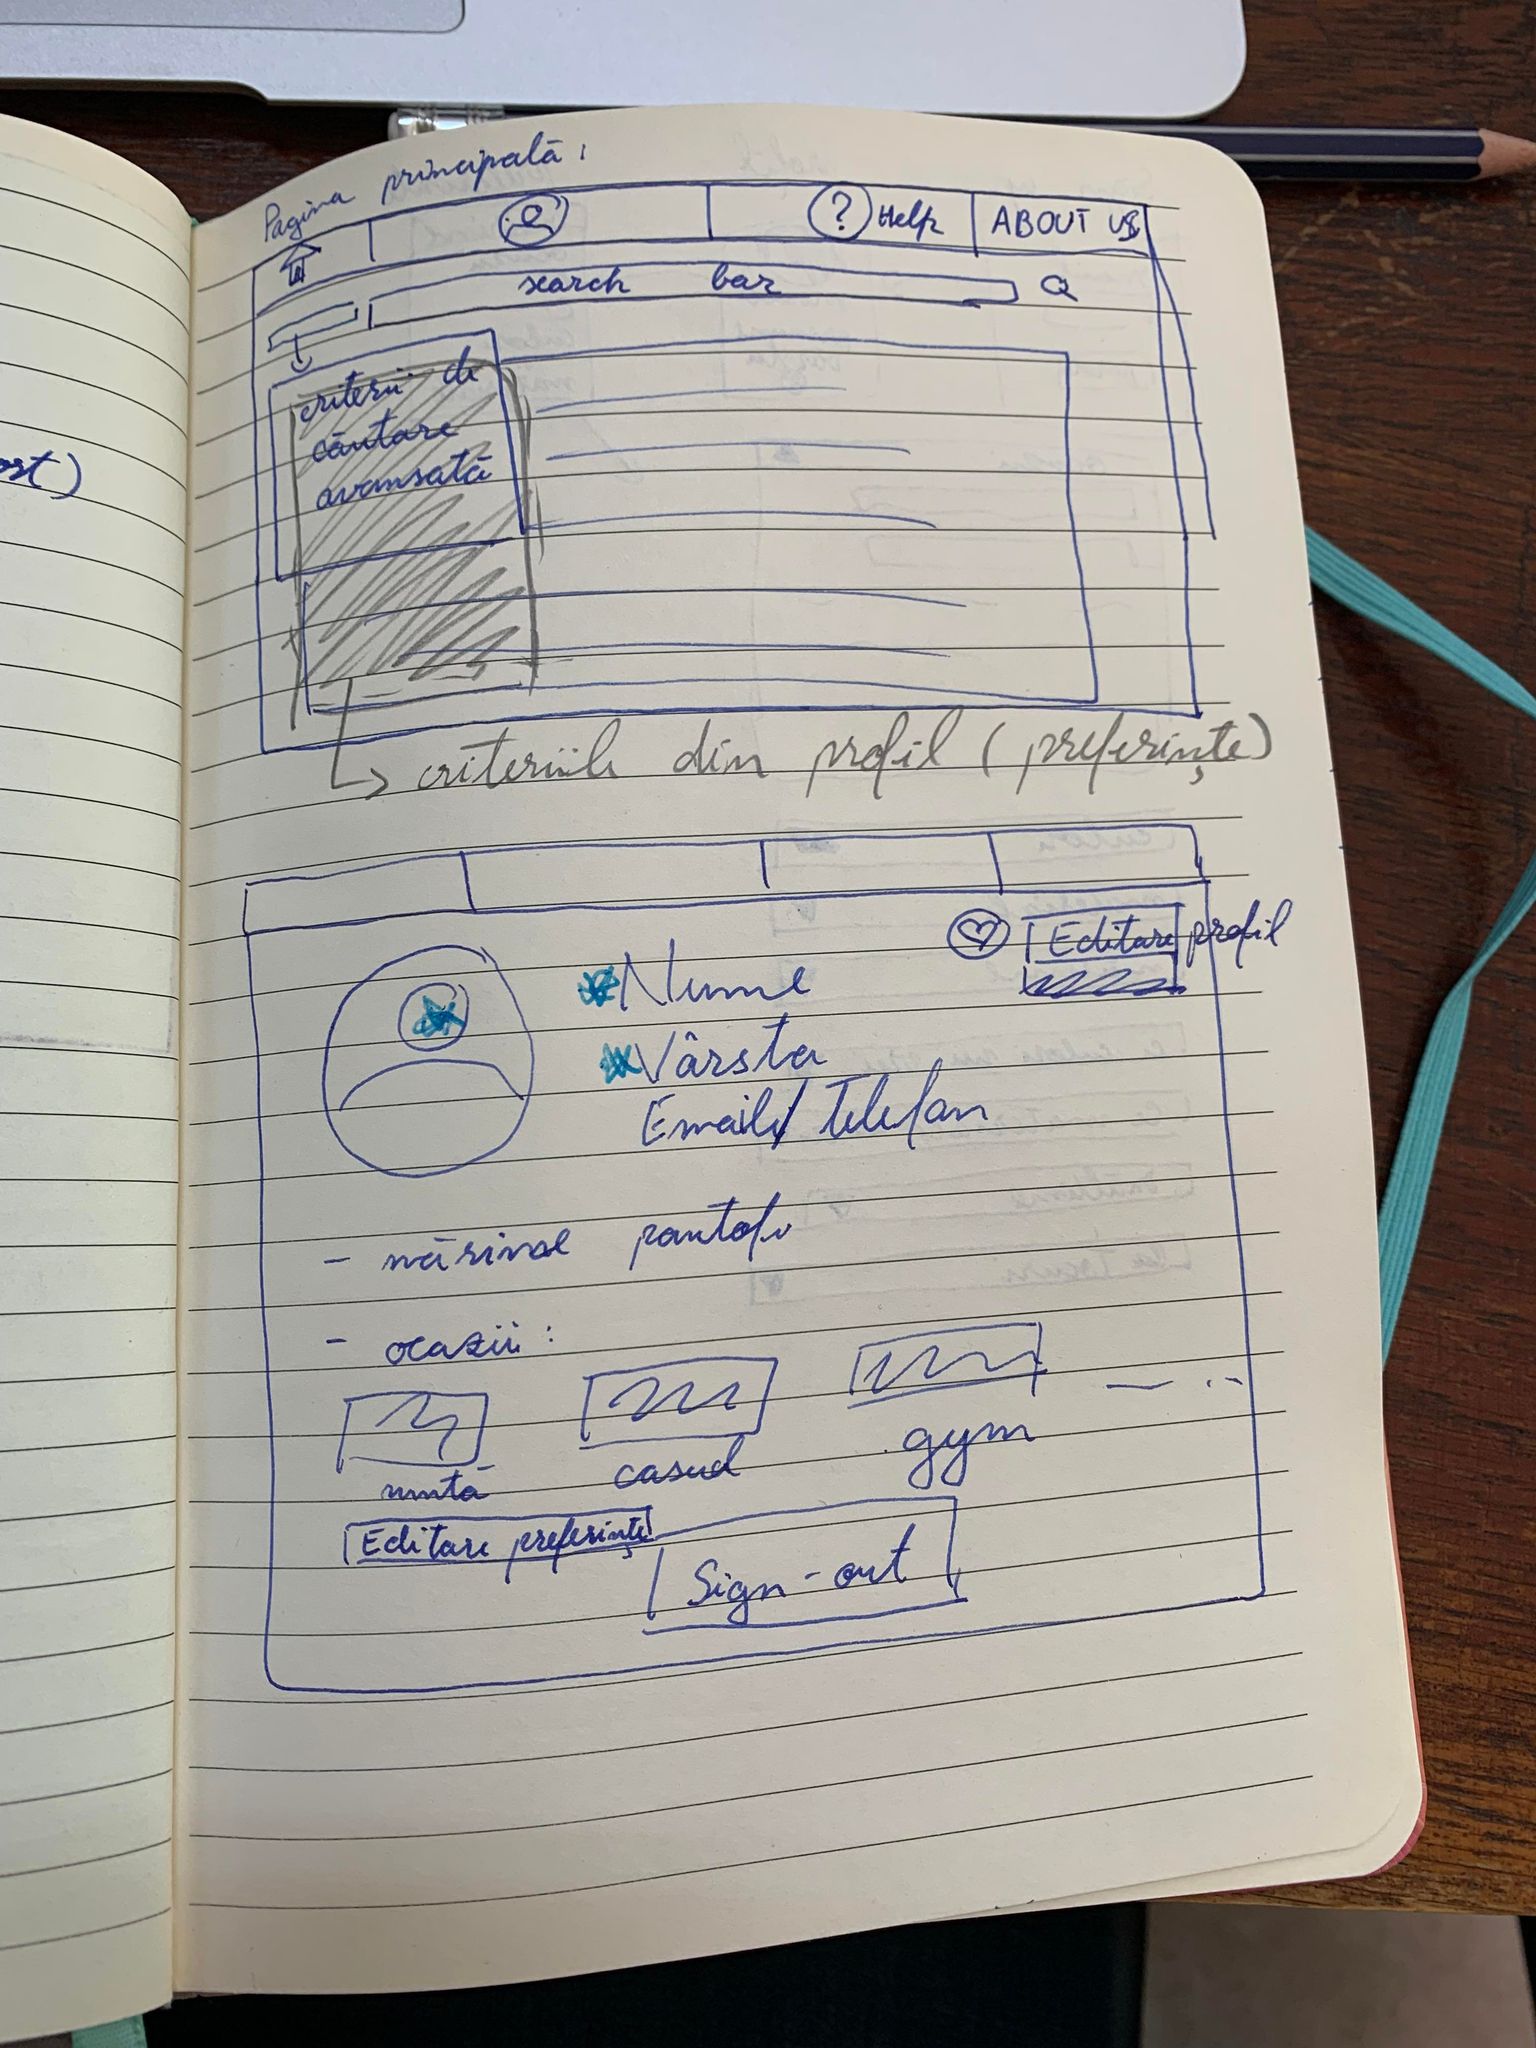 Pagina principală:
? Help
ABOUT US
search bar
criterii de
căutare
avansată
criteriile din profil (preferințe)
Editare profil
Nume
Vârsta
Email/Telefon
- mărime pantofi
- ocazii:
nuntă
casual
gym
Editare preferințe
Sign-out